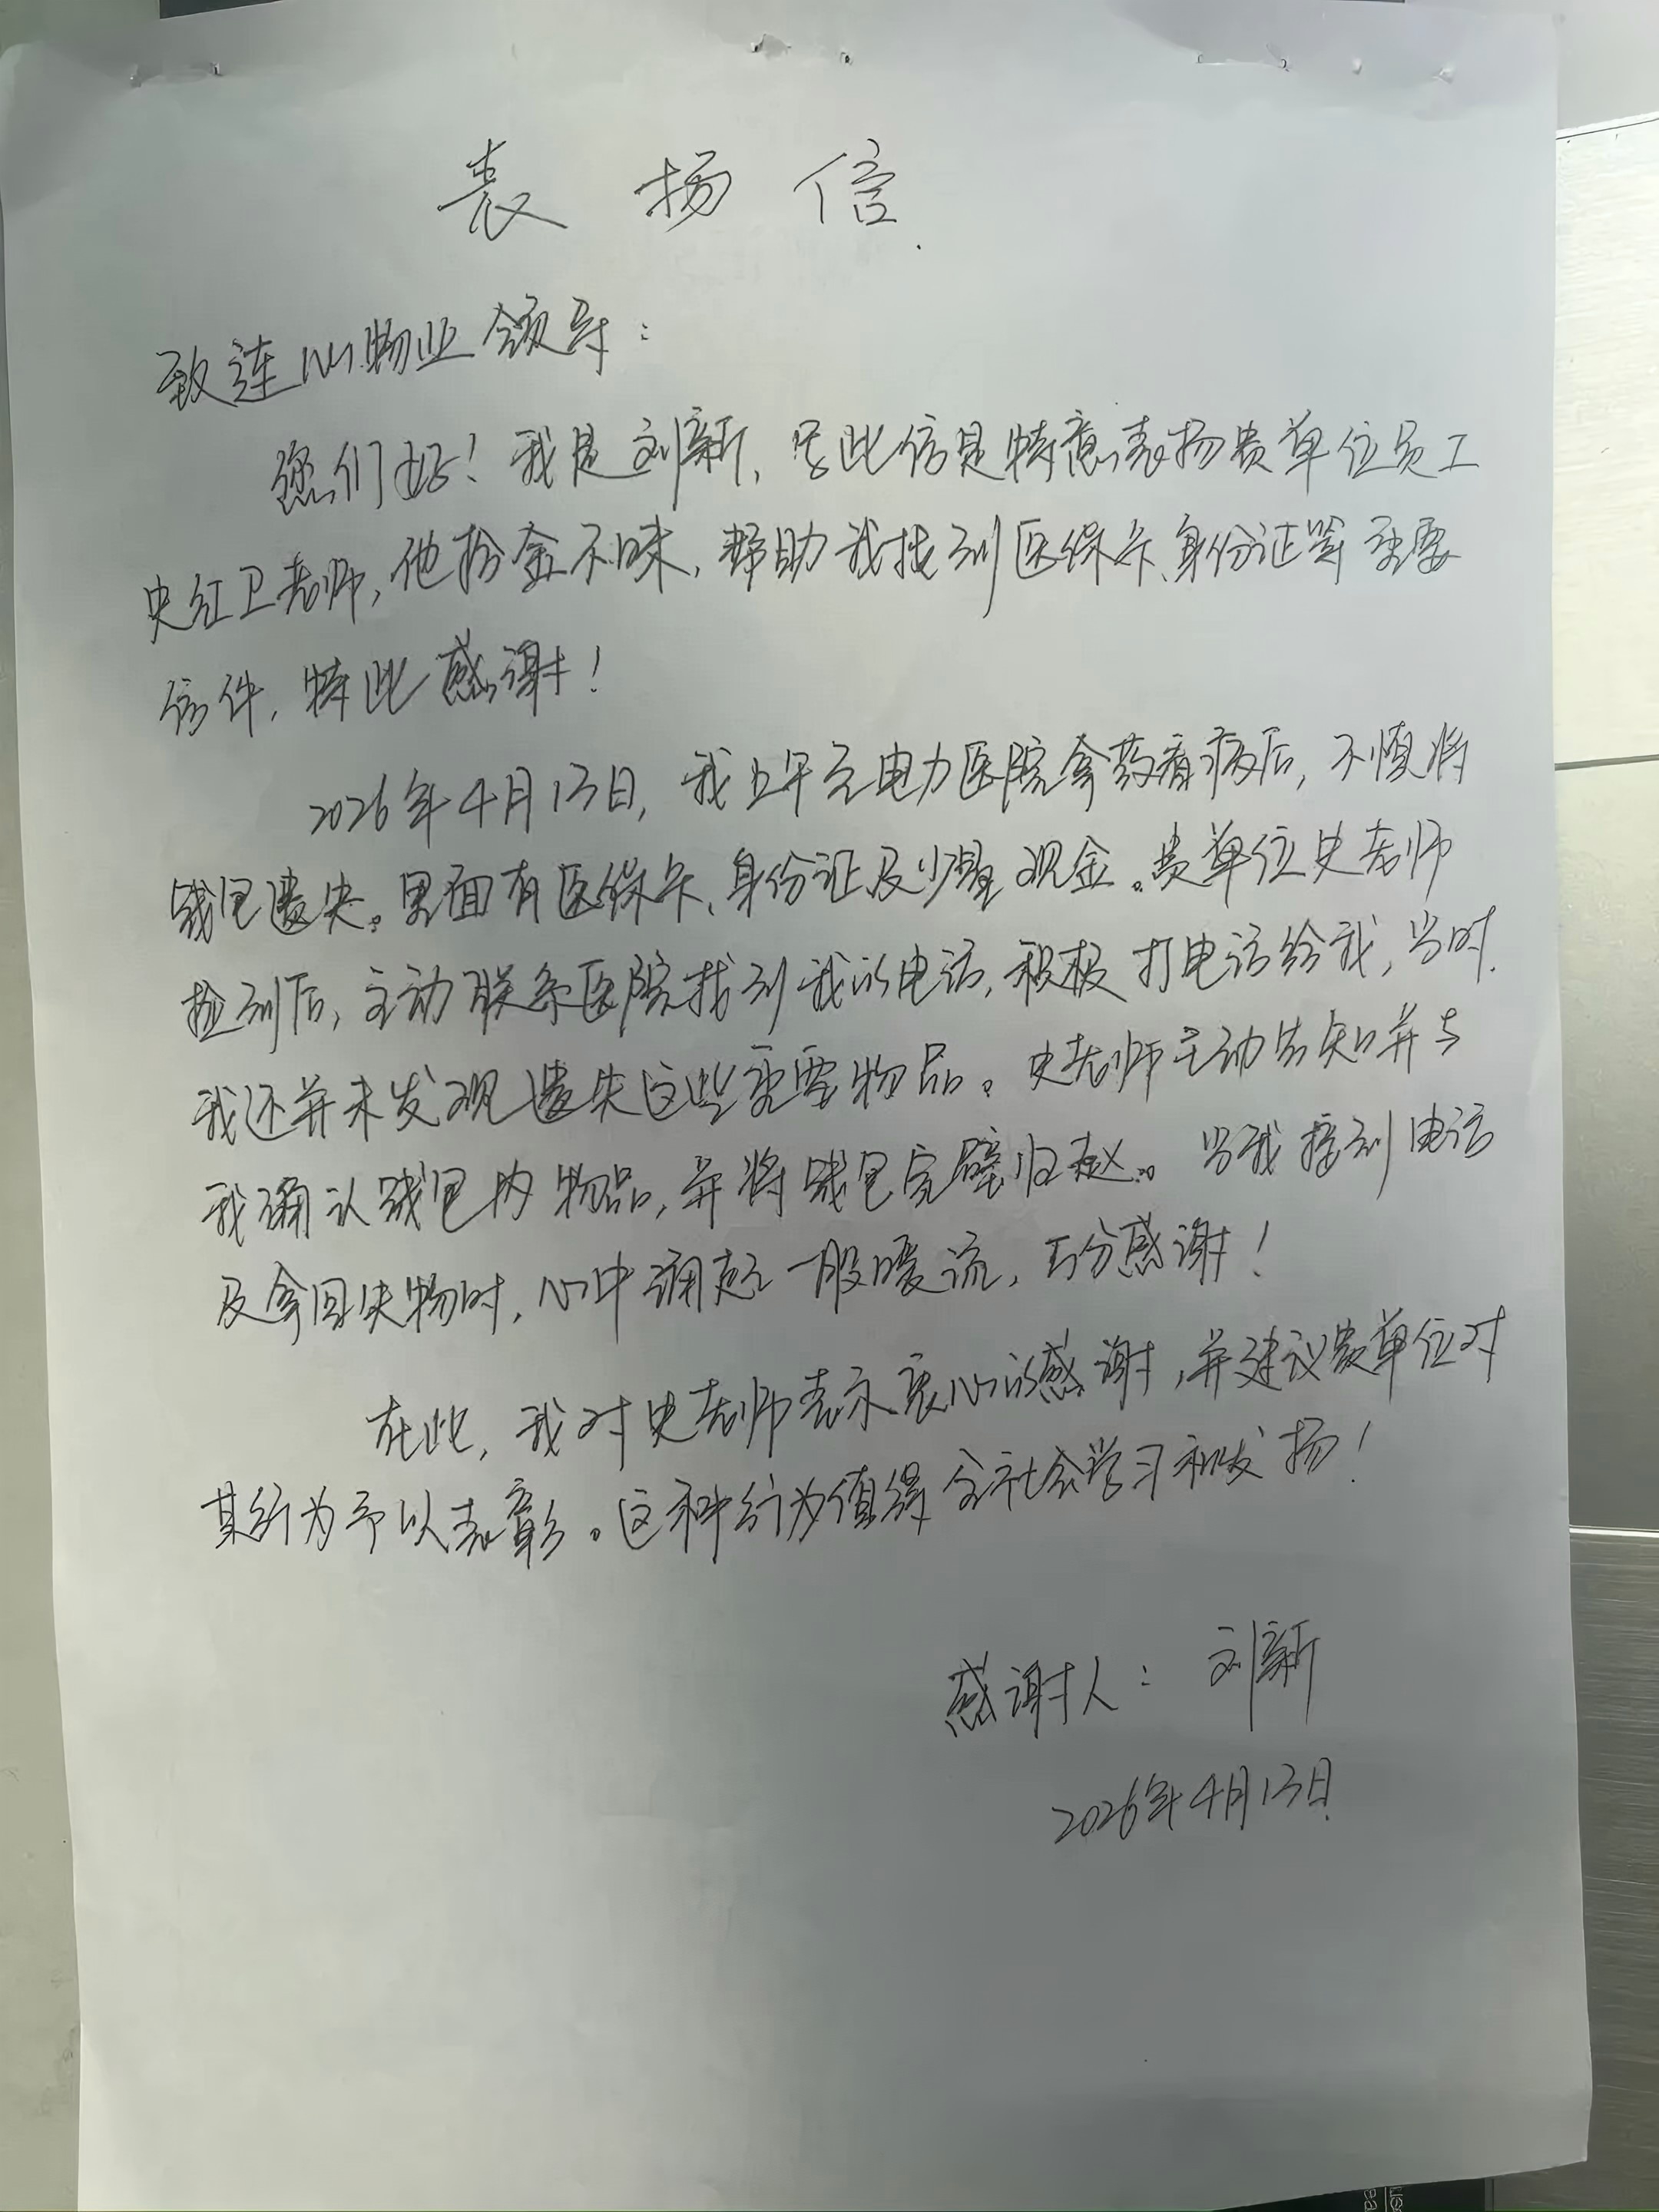 表扬信
致连心物业领导：
您们好！我是刘新，写此信是特意表扬贵单位员工
史红卫老师，他拾金不昧，帮助我找到医保卡、身份证等重要
信件，特此感谢！
2026年4月13日，我上午去电力医院拿药看病后，不慎将
钱包遗失。里面有医保卡、身份证及少量现金。贵单位史老师
捡到后，主动联系医院找到我的电话，积极打电话给我，当时
我还并未发现遗失这些重要物品。史老师主动告知并与
我确认钱包内物品，并将钱包完璧归赵。当我接到电话
及拿回失物时，心中涌起一股暖流，万分感谢！
在此，我对史老师表示衷心的感谢，并建议贵单位对
其行为予以表彰。这种行为值得全社会学习和发扬！
感谢人：刘新
2026年4月13日